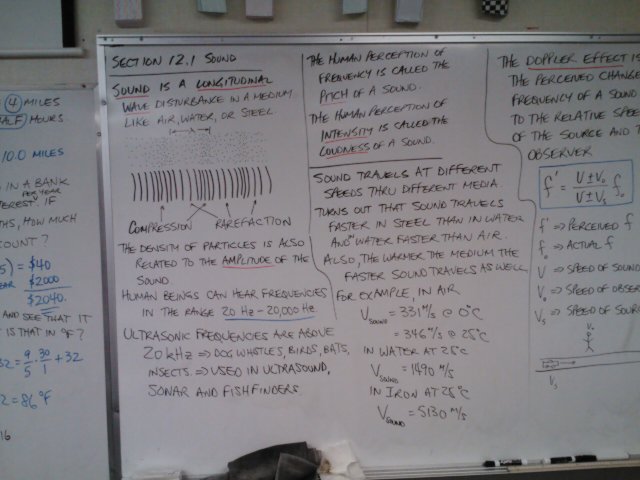 4 MILES
HALF HOURS.
10.0 MILES
IN A BANK
PER YEAR
INTEREST. IF
HOW MUCH
COUNT?
5) = $40
YEAR $2000
$2040.
AND SEE THAT IT
IS THAT IN °F?
32 = 9/5 · 30/1 + 32
2 = 86°F
16
SECTION 12.1 SOUND
SOUND IS A LONGITUDINAL
WAVE DISTURBANCE IN A MEDIUM
LIKE AIR, WATER, OR STEEL
λ
COMPRESSION RAREFACTION
THE DENSITY OF PARTICLES IS ALSO
RELATED TO THE AMPLITUDE OF THE
SOUND.
HUMAN BEINGS CAN HEAR FREQUENCIES
IN THE RANGE 20 Hz - 20,000 Hz
ULTRASONIC FREQUENCIES ARE ABOVE
20 kHz ⇒ DOG WHSTLES, BIRDS, BATS,
INSECTS. ⇒ USED IN ULTRASOUND,
SONAR AND FISHFINDERS.
THE HUMAN PERCEPTION OF
FREQUENCY IS CALLED THE
PITCH OF A SOUND.
THE HUMAN PERCEPTION OF
INTENSITY IS CALLED THE
LOUDNESS OF A SOUND.
SOUND TRAVELS AT DIFFERENT
SPEEDS THRU DIFFERENT MEDIA.
TURNS OUT THAT SOUND TRAVELS
FASTER IN STEEL THAN IN WATER
AND IN WATER FASTER THAN AIR.
ALSO, THE WARMER THE MEDIUM THE
FASTER SOUND TRAVELS AS WELL.
FOR EXAMPLE, IN AIR
V SOUND = 331 m/s @ 0°C
= 346 m/s @ 25°C
IN WATER AT 25°C
V SOUND = 1490 m/s
IN IRON AT 25°C
V SOUND = 5130 m/s
THE DOPPLER EFFECT IS
THE PERCEIVED CHANGE
FREQUENCY OF A SOUND
TO THE RELATIVE SPEE
OF THE SOURCE AND T
OBSERVER
f' = (V ± Vo)/(V ± Vs) fo
f' ⇒ PERCEIVED f
fo ⇒ ACTUAL f
V ⇒ SPEED OF SOUND
Vo ⇒ SPEED OF OBSER
Vs ⇒ SPEED OF SOURC
Vo
Vs